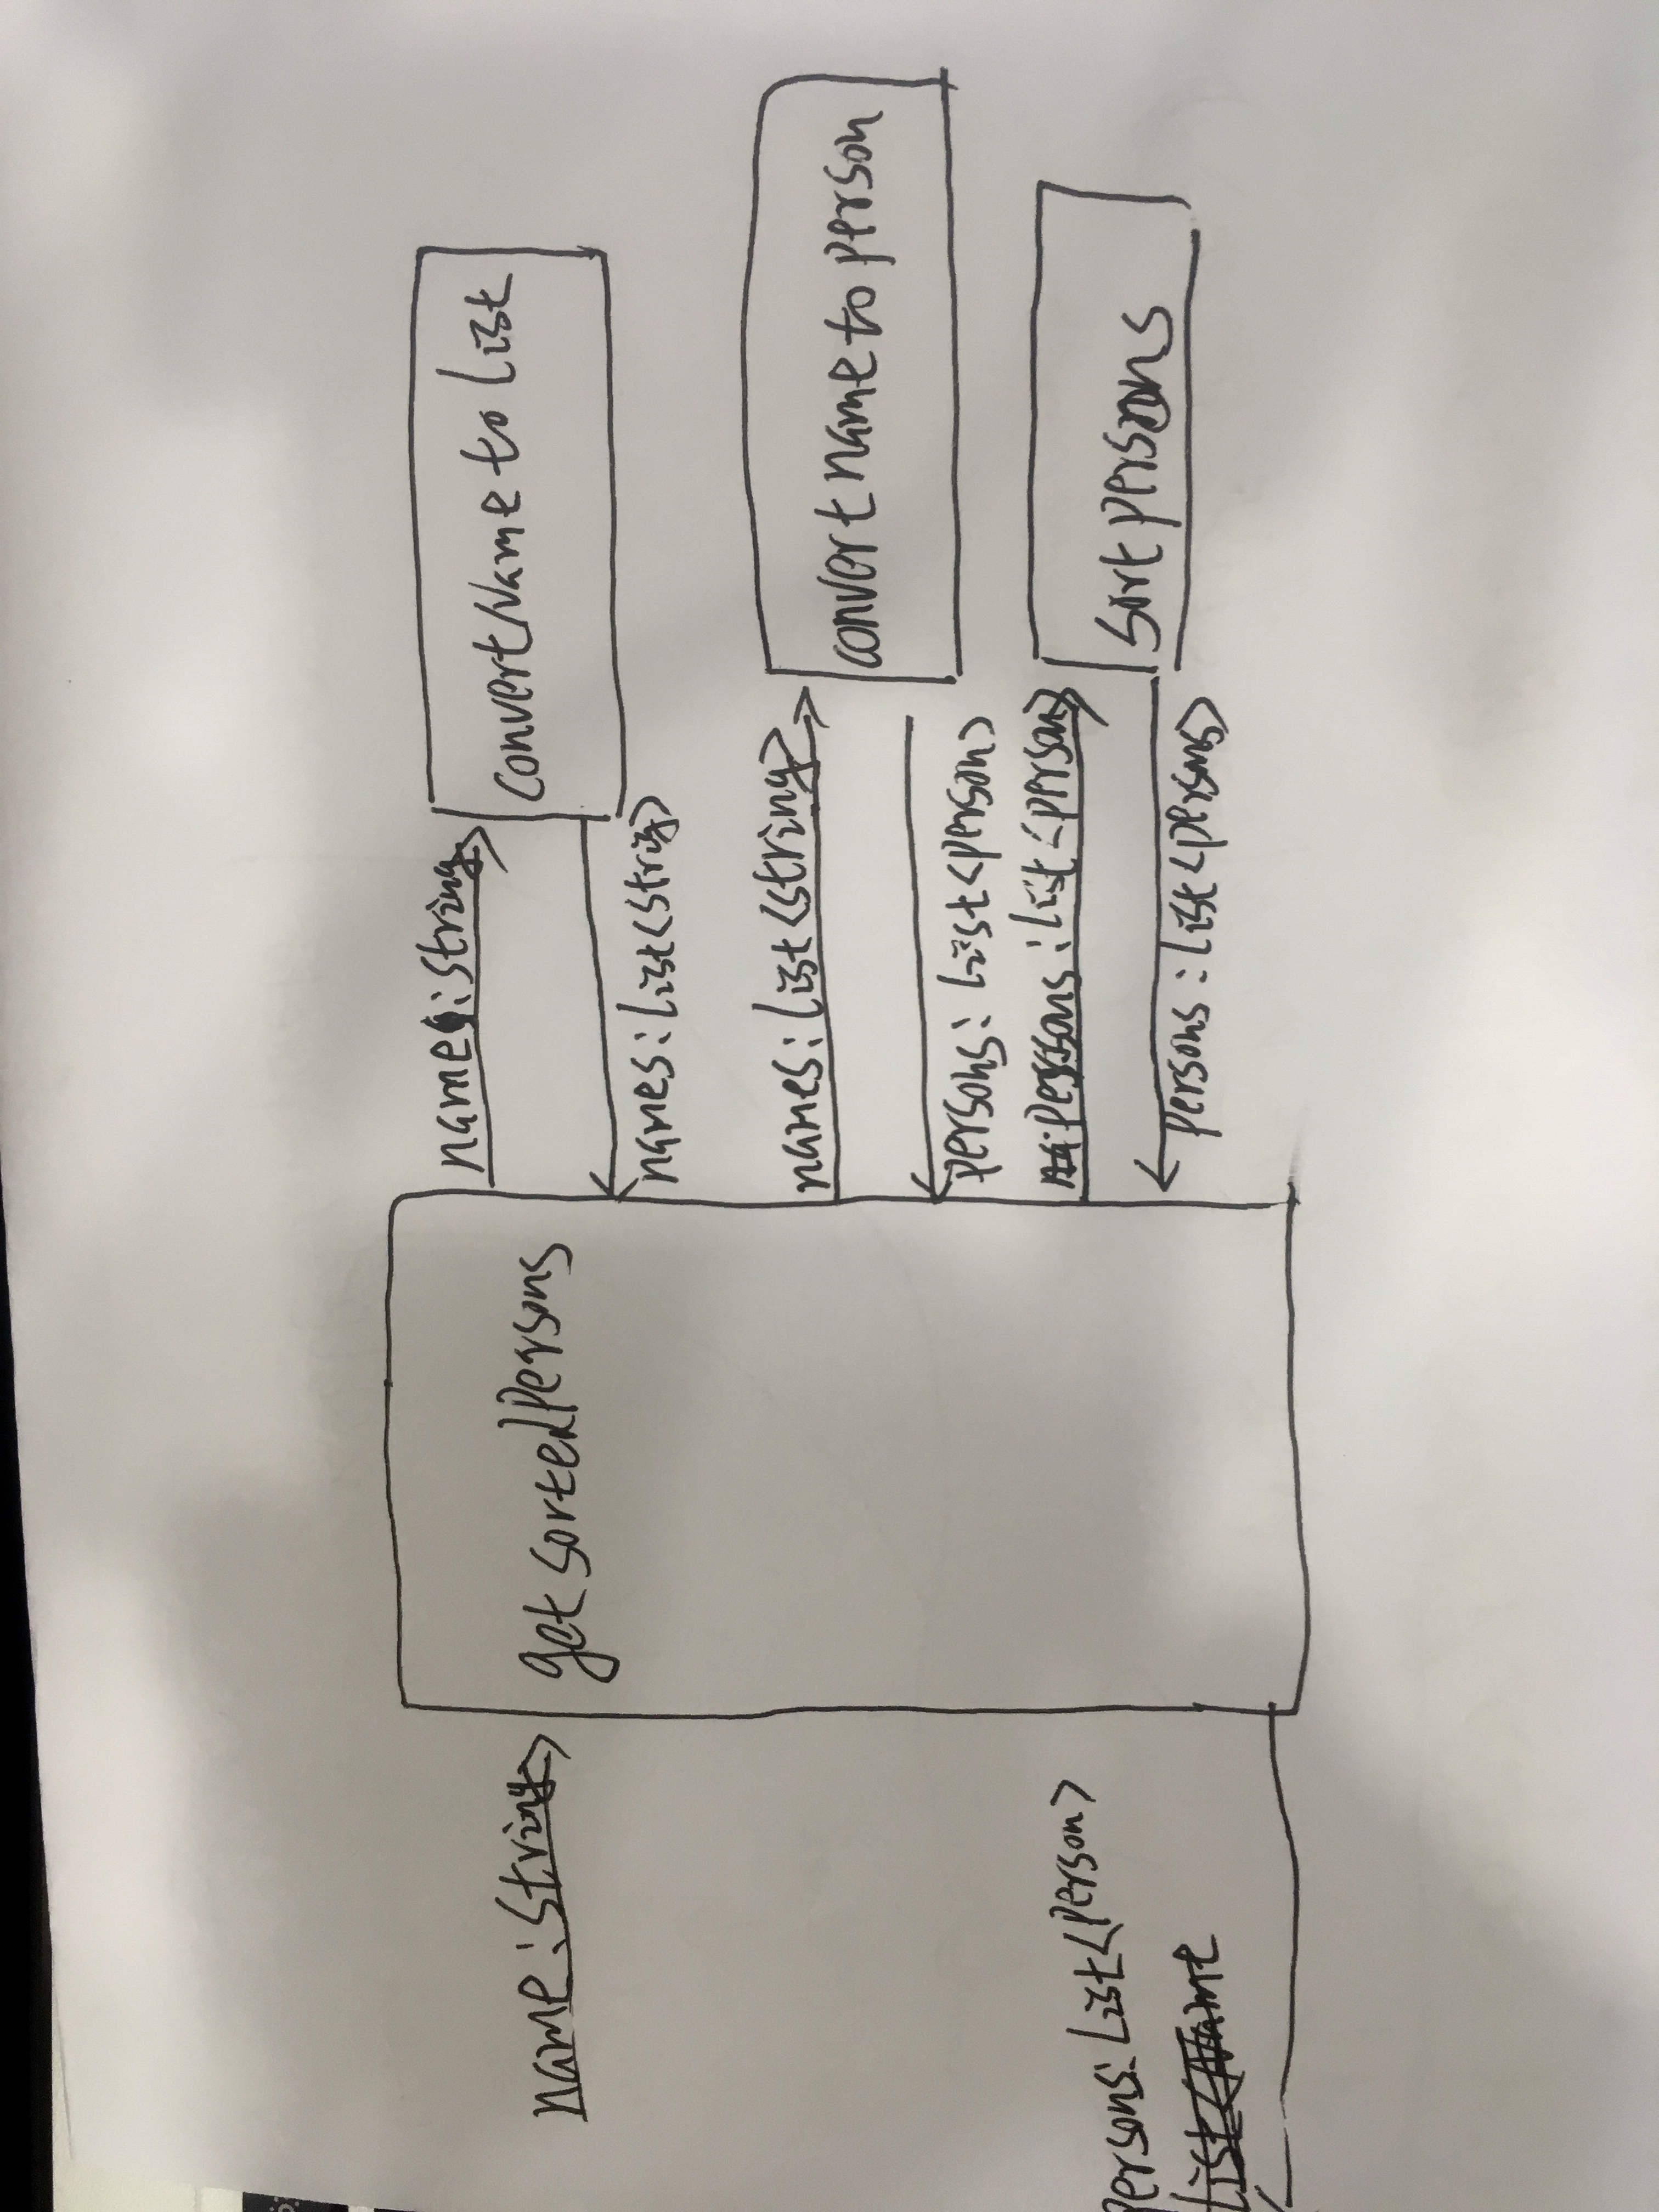 name:String
getsortedPersons
names:String
ConvertName to List
names:List<String>
names:List<String>
convert name to person
persons: List<person>
persons:List<person>
Sort persons
persons:List<person>
persons: List<person>